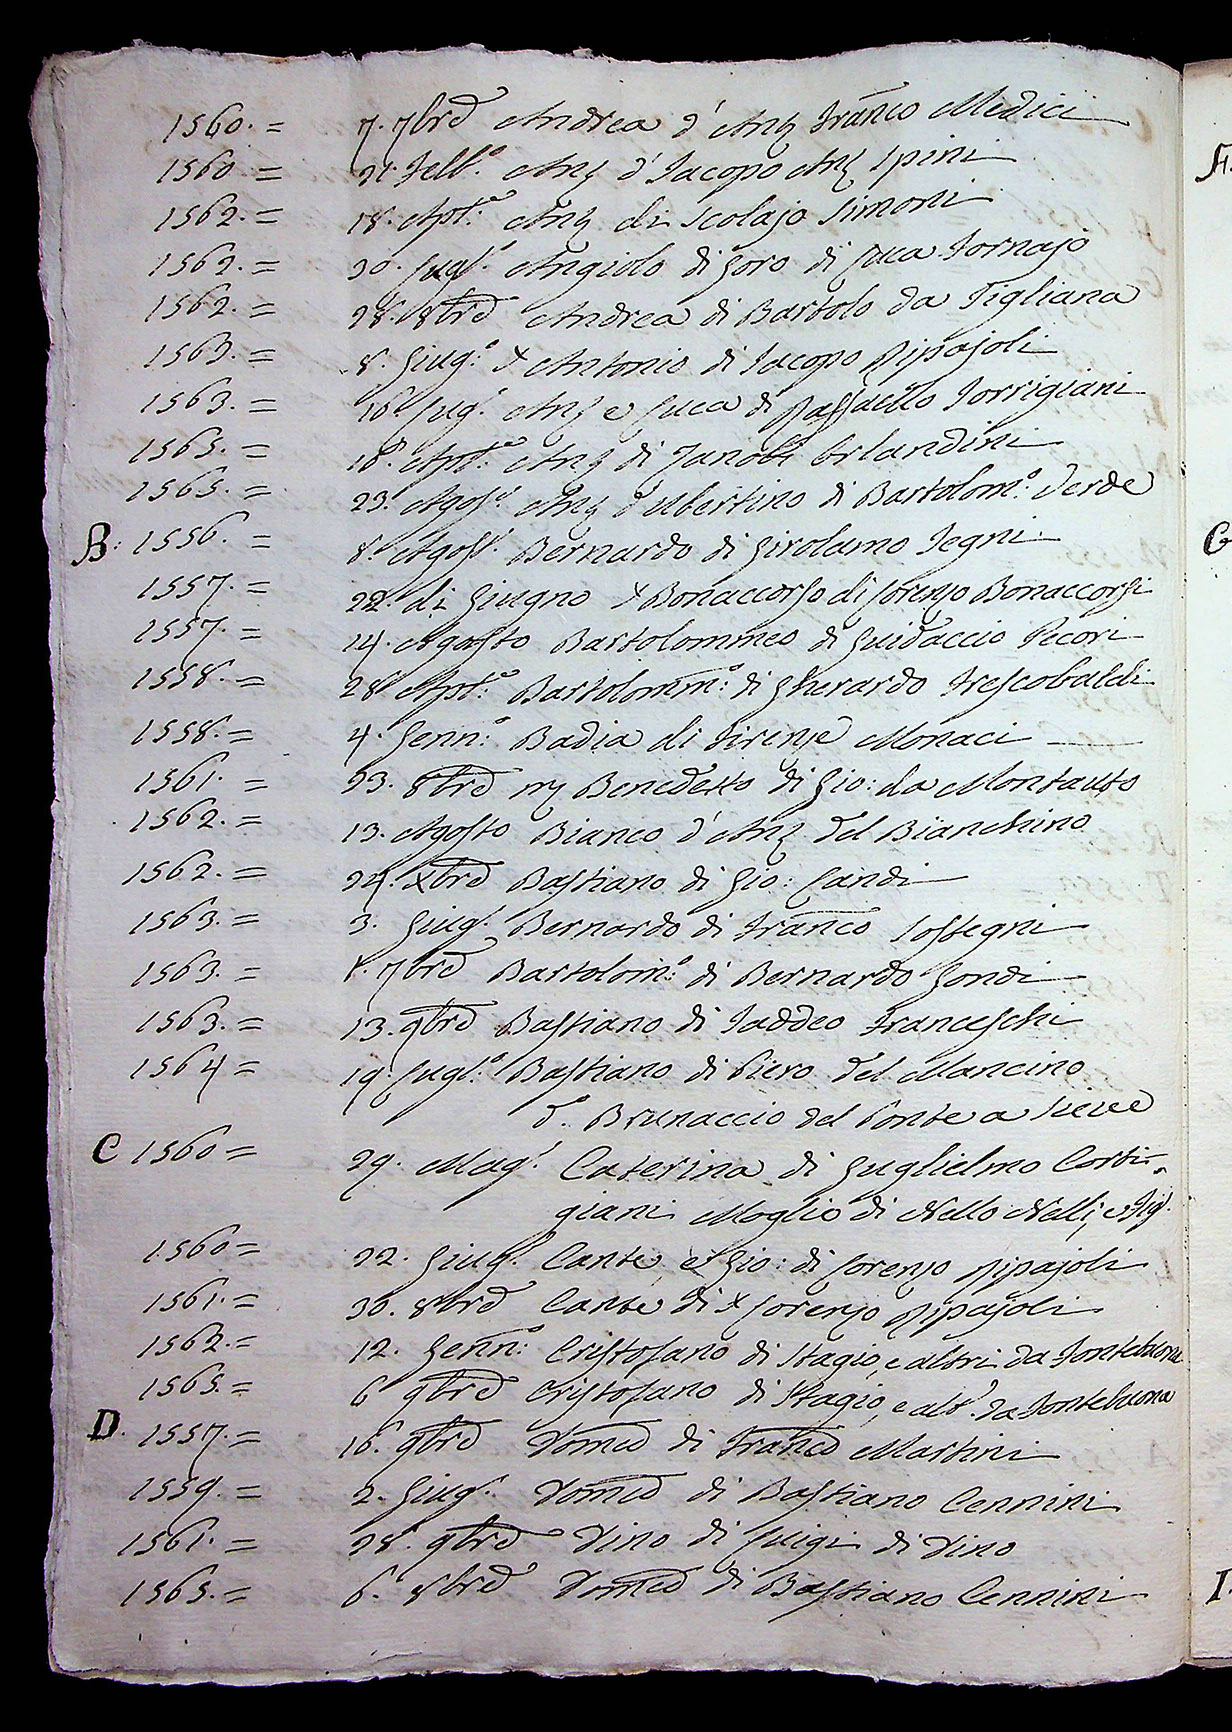 1560. = 7. 7bre Andrea d'Antº Franco Medici
1560 = 21. Febb.º Antº d'Jacopo Antº Spini
1562. = 18. Apl.e Antº di Scolajo Simoni
1562. = 20. Lugl.º Angiolo di Goro di Luca Fornajo
1562. = 28. 8bre Andrea di Bartolo da Tigliana
1563. = 8. Giug.º + Antonio di Jacopo Pipajoli
1563. = 16 Lug.º Antº e Luca di Raffaello Torrigiani
1565. = 18. Apl.e Antº di Zanobi Orlandini
1565. = 23. Agos.º Antº d'Ubertino di Bartolom.º Verde
B: 1556. = 8. Agos.º Bernardo di Girolamo Segni
1557. = 22. di Giugno + Bonaccorso di Lorenzo Bonaccorsi
1557. = 14. Agosto Bartolommeo di Guidaccio Pecori
1558. = 28 Apl.e Bartolomm.º di Gherardo Frescobaldi
1558. = 4. Genn.º Badia di Firenze Monaci
1561. = 23. 8bre Benedetto di Gio: da Montauto
1562. = 13. Agosto Bianco d'Antº del Bianchino
1562. = 24. Xbre Bastiano di Gio: Landi
1563. = 3. Giug.º Bernardo di Franco Sostegni
1563. = 7bre Bartolom.º di Bernardo Gondi
1563. = 13. 9bre Bastiano di Taddeo Franceschi
1564 = 19. Lugl.º Bastiano di Piero del Mancino
d.º Brunaccio del Ponte a Sieve
C 1560 = 29. Mag.º Caterina di Guglielmo Corti=
giani Moglie di Nello Nelli, e Fig.
1560 = 22. Giug.º Cante e Gio: di Lorenzo Pipajoli
1561. = 30. 8bre Cante di + Lorenzo Pipajoli
1562. = 12. Genn.º Cristofano di Stagio, e altri da Fontebuona
1565. = 6 9bre Cristofano di Stagio, e alt.i da Fontebuona
D. 1557. = 16. 9bre Domco di Franco Martini
1559. = 2. Giug.º Domco di Bastiano Cennini
1561. = 28. 9bre Dino di Luigi di Dino
1565. = 6. 8bre Domco di Bastiano Cennini
G
I.